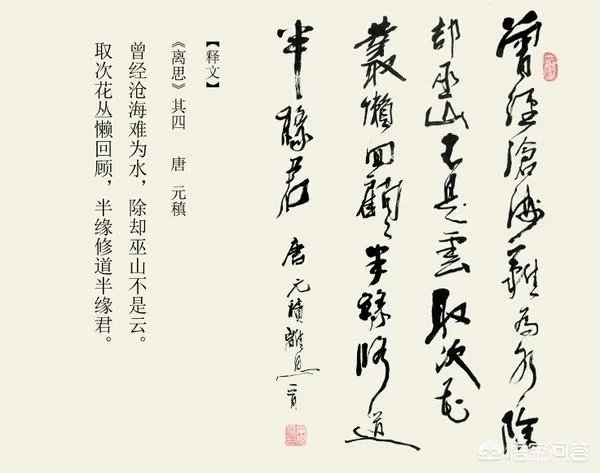 曾經滄海難為水除
却巫山不是雲取次花
叢懶回顧半緣修道
半緣君 唐元稹離思一首
【释文】
《离思》其四 唐 元稹
曾经沧海难为水，除却巫山不是云。
取次花丛懒回顾，半缘修道半缘君。
悟空问答